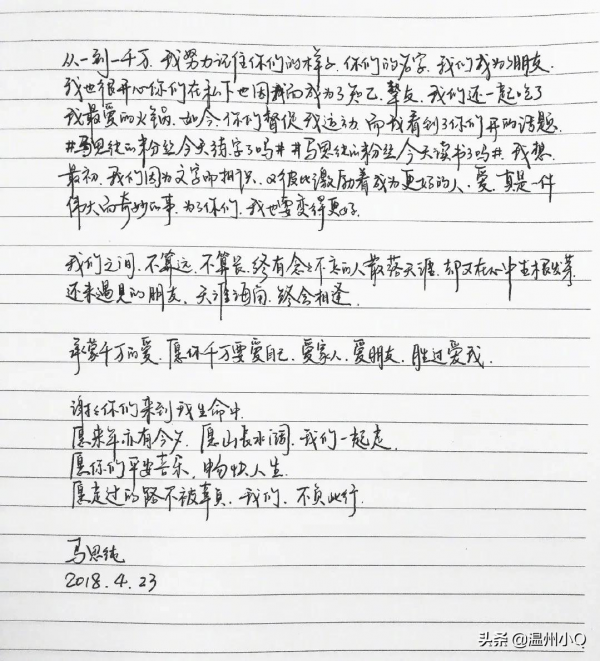 从一到一千万，我努力记住你们的样子，你们的名字，我们成为了朋友，
我也很开心你们在私下也因我而成为了知己，挚友，我们还一起吃了
我最爱的火锅，如今，你们督促我运动，而我看到了你们开的话题，
#马思纯的粉丝今天练字了吗# #马思纯的粉丝今天读书了吗#，我想，
最初，我们因为文字而相识，又彼此激励着成为更好的人，爱，真是一件
伟大而奇妙的事，为了你们，我也要变得更好。
我们之间，不算远，不算长，终有念念不忘的人散落天涯，却又在心中生根发芽，
还未遇见的朋友，天涯海角，终会相逢。
承蒙千万的爱，愿你千万要爱自己，爱家人，爱朋友，胜过爱我。
谢谢你们来到我生命中，
愿来年亦有今夕，愿山长水阔，我们一起走，
愿你们平安喜乐，畅快人生，
愿走过的路不被辜负，我们，不负此行。
马思纯
2018.4.23
头条@温州小Q